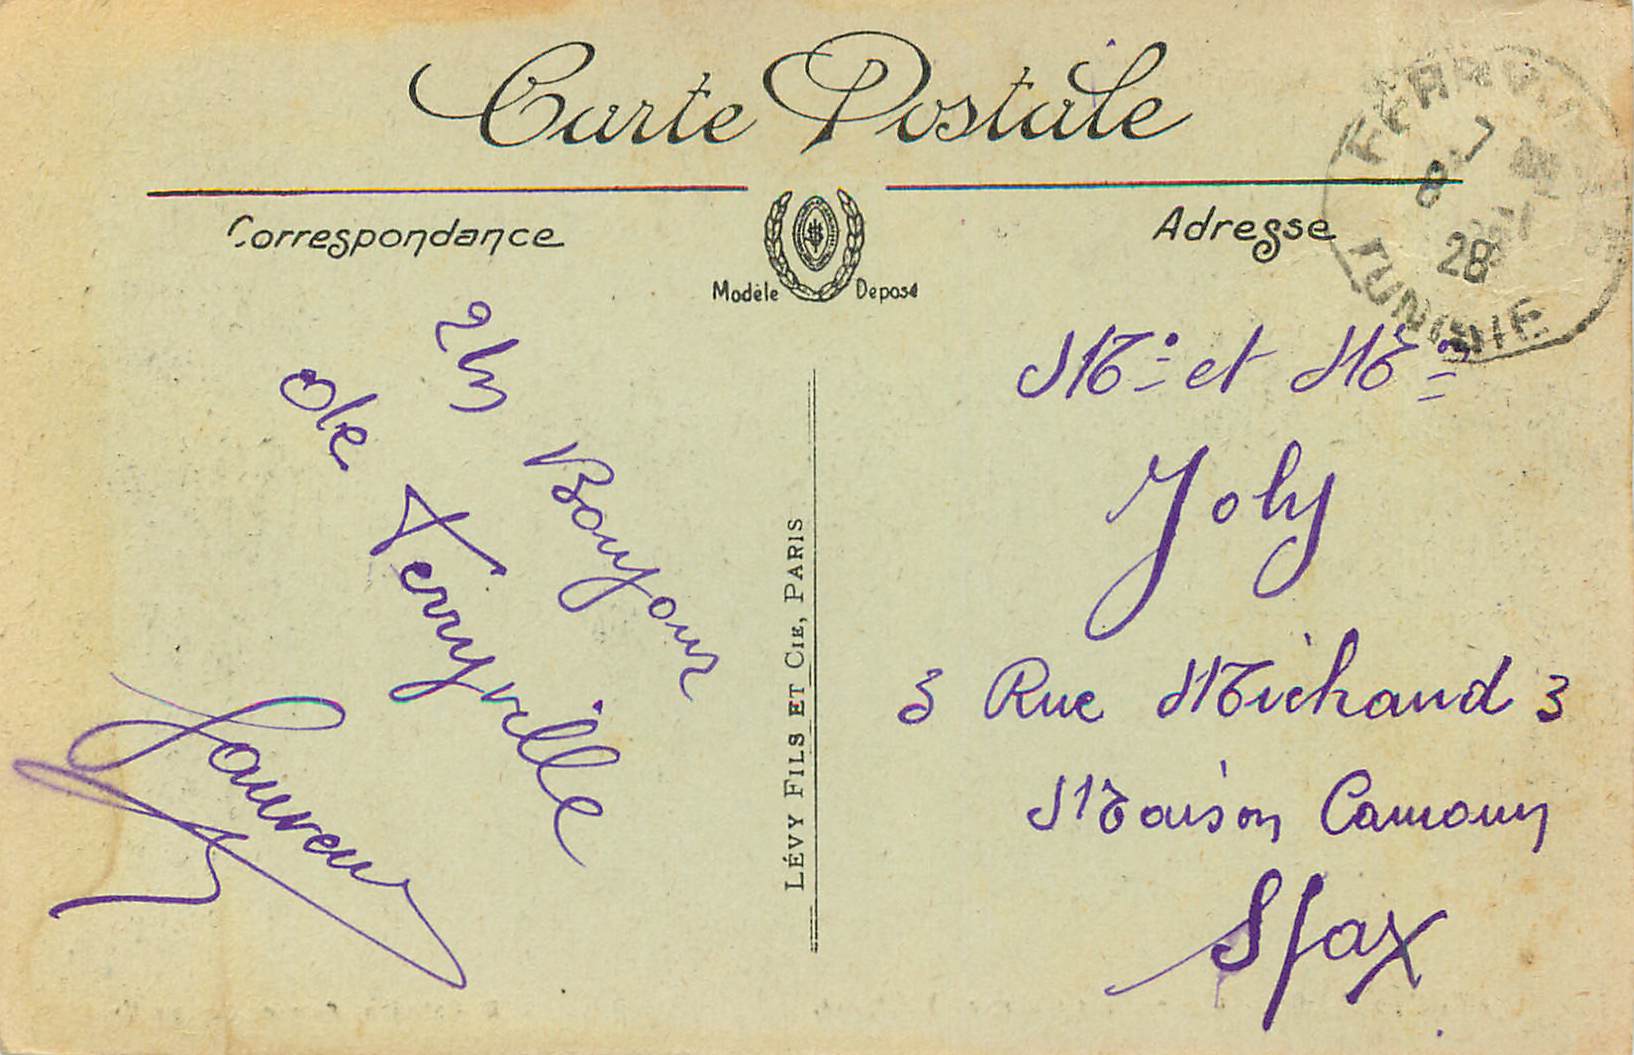 Carte Postale
Correspondance
Adresse
Modèle Déposé
FERRYVILLE
7
8
28
TUNISIE
Un Bonjour
de Ferryville
LÉVY FILS ET CIE, PARIS
Mr. et Me.
Joly
3 Rue Michaud 3
Maison Camoun
Sfax